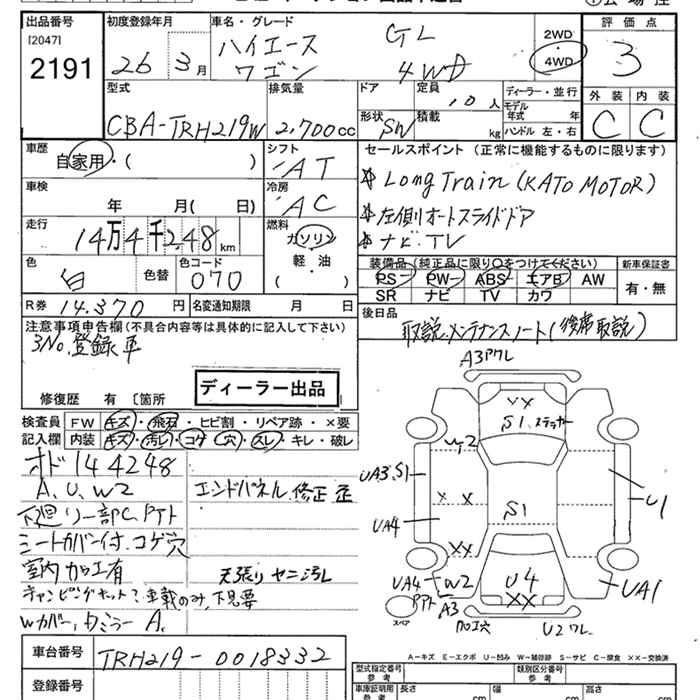 出品番号 初度登録年月 車名・グレード 評価点
[2047]
2191 26年3月 ハイエース GL 2WD 3
ワゴン 4WD 4WD
型式 排気量 ドア 定員 10人 ディーラー・並行 外装 内装
モデル年式 年
CBA-TRH219W 2,700cc 形状 SW 積載 kg ハンドル 左・右 C C
車歴 シフト セールスポイント (正常に機能するものに限ります)
自家用・( ) AT Long Train (KATO MOTOR)
車検 冷房
年 月( 日) AC 左側オートスライドドア
走行 燃料
14万4千248km ガソリン ナビ.TV
軽・油
( )
色 色替 色コード 装備品(純正品に限り○をつけてください) 新車保証書
白 070 PS PW ABS エアB AW 有・無
SR ナビ TV カワ
R券 14,370円 名変通知期限 月 日 後日品
注意事項申告欄(不具合内容等は具体的に記入して下さい) 取説.メンテナンスノート(後席取説)
3No.登録車
ディーラー出品
修復歴 有 〔箇所
検査員 FW キズ・飛石・ヒビ割・リペア跡・×要
記入欄 内装 キズ・汚レ・コゲ・穴・スレ・キレ・破レ
オド144248
A,U,W2 エンドパネル.修正歪
下廻り一部C,PTト
シートカバー付.コゲ穴
室内カッ工有 天張りヤニ汚レ
キャンピングキット?車載のみ,下見要
Wカバー,タミラーA.
A3アワレ
XX
S1.ステッカー
W2
UA3.S1
U1
X X
S1
UA4
XX
UA4 W2 U4 UA1
PTト A3 XX
スペア
加工穴 U2ワレ
車台番号 TRH219-0018332
A-キズ E-エクボ U-凹み W-補修跡 S-サビ C-腐食 XX-交換済
登録番号 型式指定番号 類別区分番号
車庫証明用参考 長さ cm 幅 cm 高さ cm